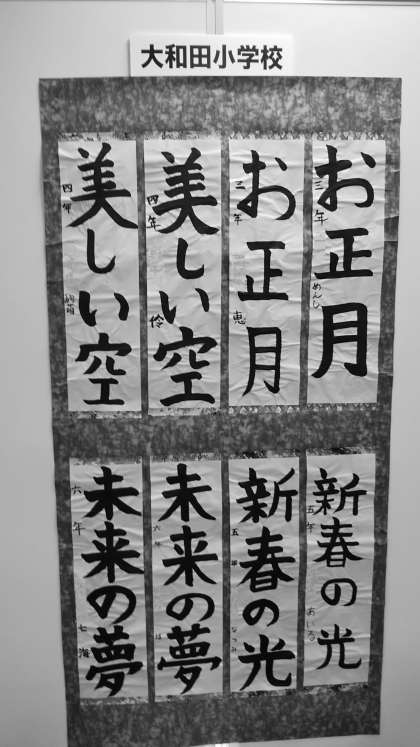 大和田小学校
お正月
三年
めんじ
お正月
三年
恵
美しい空
四年
伶
美しい空
四年
新春の光
五年
あいる
新春の光
五年
なつみ
未来の夢
六年
未来の夢
六年
七海